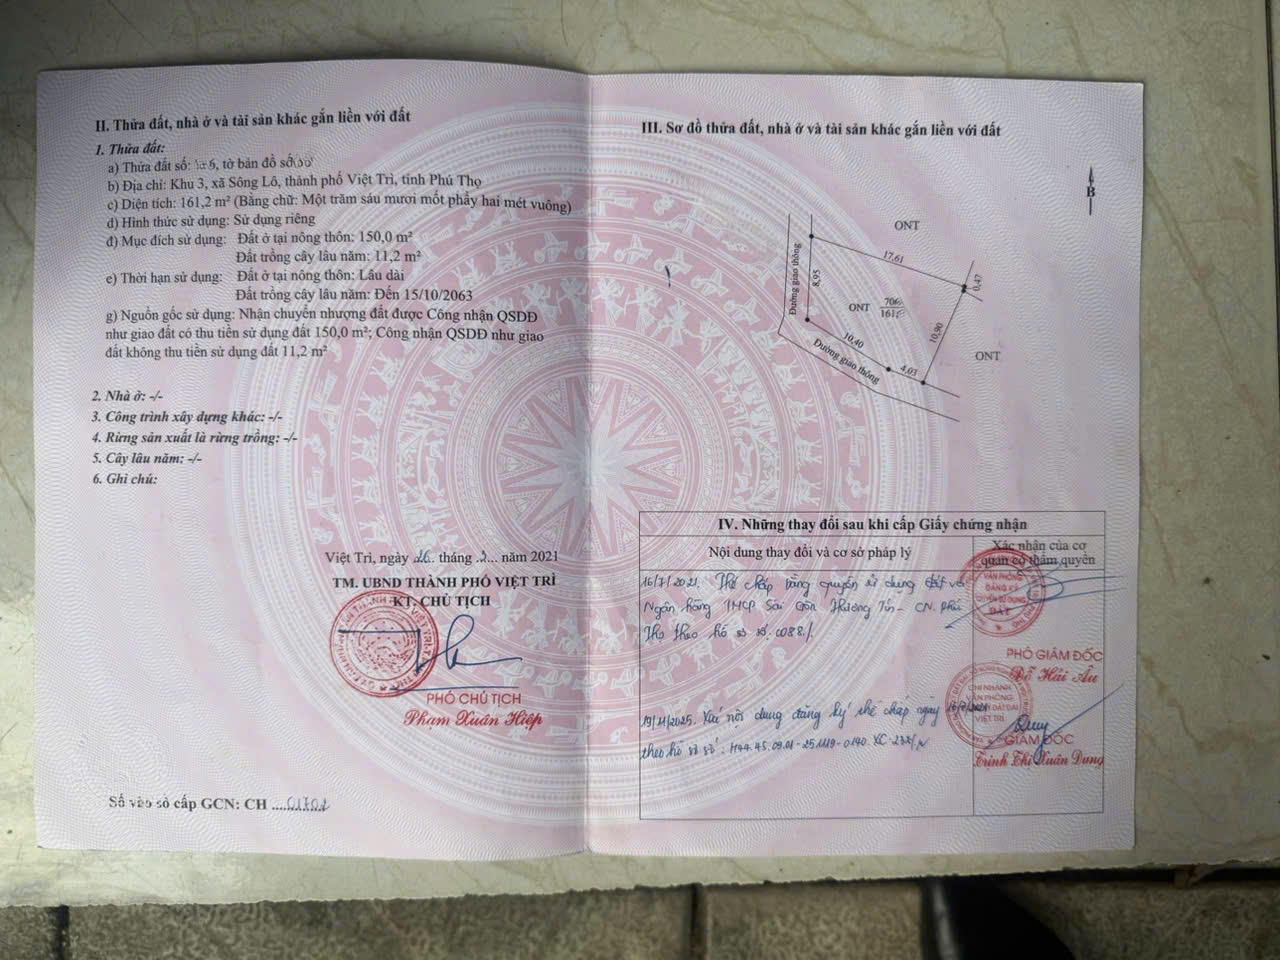 II. Thửa đất, nhà ở và tài sản khác gắn liền với đất
1. Thửa đất:
a) Thửa đất số: , tờ bản đồ số
b) Địa chỉ: Khu 3, xã Sông Lô, thành phố Việt Trì, tỉnh Phú Thọ
c) Diện tích: 161,2 m² (Bằng chữ: Một trăm sáu mươi mốt phẩy hai mét vuông)
d) Hình thức sử dụng: Sử dụng riêng
đ) Mục đích sử dụng: Đất ở tại nông thôn: 150,0 m²
Đất trồng cây lâu năm: 11,2 m²
e) Thời hạn sử dụng: Đất ở tại nông thôn: Lâu dài
Đất trồng cây lâu năm: Đến 15/10/2063
g) Nguồn gốc sử dụng: Nhận chuyển nhượng đất được Công nhận QSDĐ
như giao đất có thu tiền sử dụng đất 150,0 m²; Công nhận QSDĐ như giao
đất không thu tiền sử dụng đất 11,2 m²
2. Nhà ở: -/-
3. Công trình xây dựng khác: -/-
4. Rừng sản xuất là rừng trồng: -/-
5. Cây lâu năm: -/-
6. Ghi chú:
Việt Trì, ngày 26 tháng 2 năm 2021
TM. UBND THÀNH PHỐ VIỆT TRÌ
KT. CHỦ TỊCH
PHÓ CHỦ TỊCH
Phạm Xuân Hiệp
Số vào sổ cấp GCN: CH ....01702
III. Sơ đồ thửa đất, nhà ở và tài sản khác gắn liền với đất
B
ONT
17,61
0,47
Đường giao thông
8,95
ONT
706
10,90
10,40
ONT
Đường giao thông
4,03
IV. Những thay đổi sau khi cấp Giấy chứng nhận
Nội dung thay đổi và cơ sở pháp lý
Xác nhận của cơ
quan có thẩm quyền
16/7/2021. Thế chấp bằng quyền sử dụng đất với
Ngân hàng TMCP Sài Gòn Thương Tín - CN. Phú
Thọ theo hồ sơ số: 0088./.
VĂN PHÒNG
ĐĂNG KÝ
QUYỀN SỬ DỤNG
ĐẤT
PHÓ GIÁM ĐỐC
Đỗ Hải Âu
19/11/2025. Xóa nội dung đăng ký thế chấp ngày 16/7/2021
theo hồ sơ số: H44.45.09.01-251119-0140.XC-232/
CHI NHÁNH
VĂN PHÒNG
ĐẤT ĐAI
VIỆT TRÌ
GIÁM ĐỐC
Trịnh Thị Xuân Dung